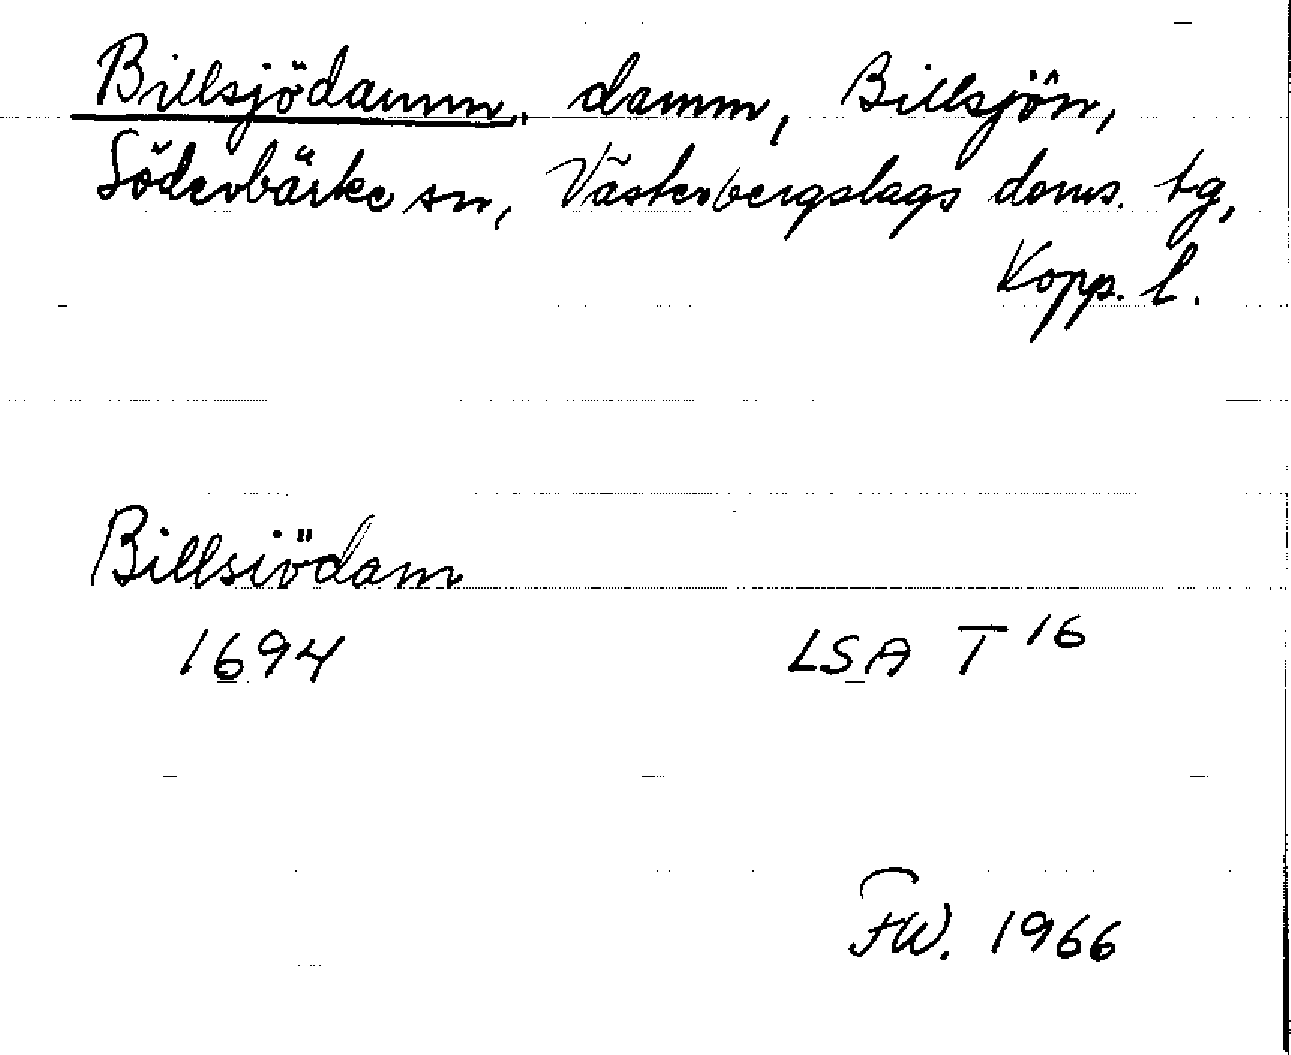 Billsjödamm, damm, Billsjön,
Söderbärke sn, Västerbergslags doms. tg,
Kopp. l.
Billsiödam
1694 LSA T 16
FW. 1966